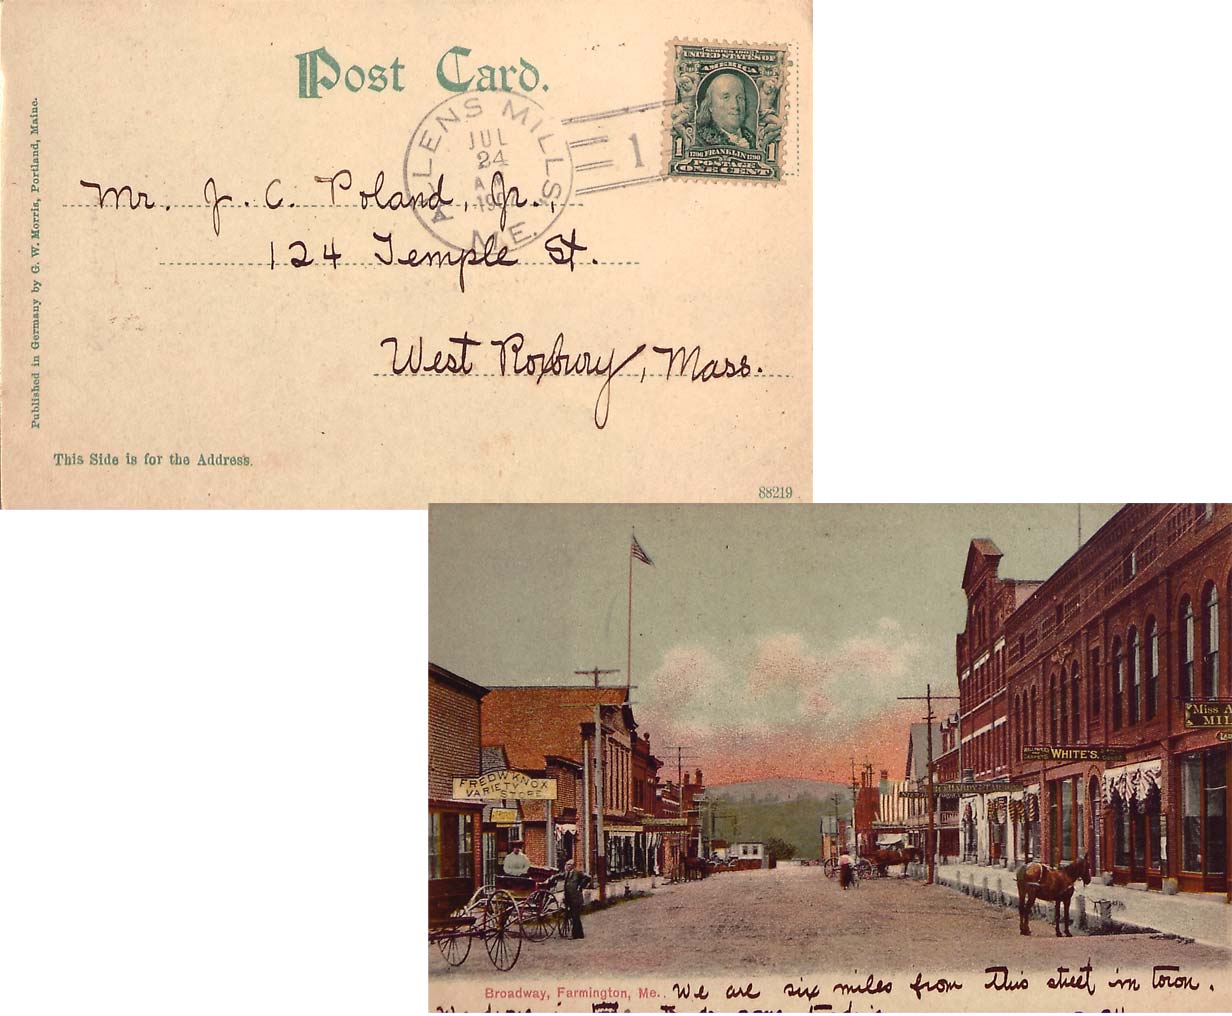 Post Card.
SERIES 1902
UNITED STATES OF
AMERICA
1 1706 FRANKLIN 1790 1
POSTAGE
ONE CENT
ALLENS MILLS,
JUL
24
ME.
1
Mr. J. C. Poland, Jr.,
124 Temple St.
West Roxbury, Mass.
Published in Germany by G. W. Morris, Portland, Maine.
This Side is for the Address.
88219
FRED W KNOX
VARIETY
STORE
WHITE'S.
Miss A
MIL
Broadway, Farmington, Me.
We are six miles from this street in town.